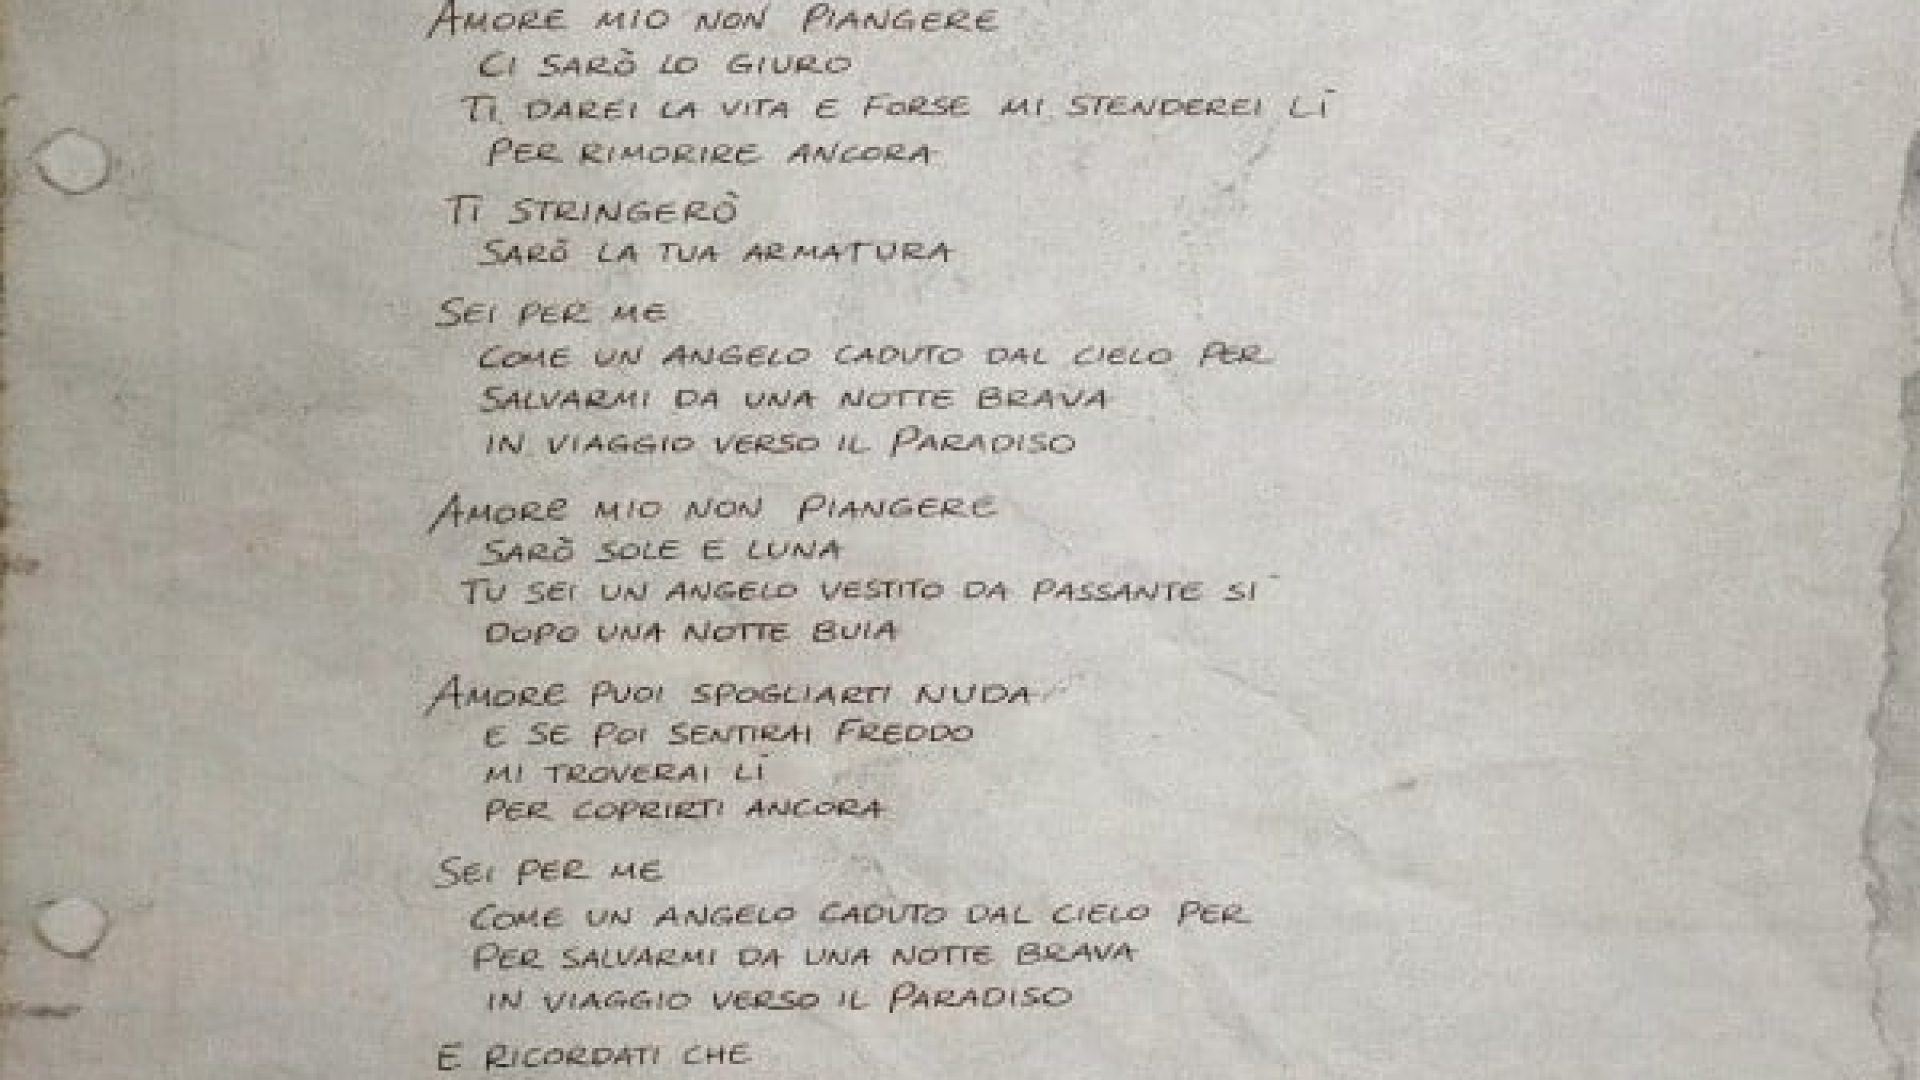 AMORE MIO NON PIANGERE
CI SARÒ LO GIURO
TI DAREI LA VITA E FORSE MI STENDEREI LÌ
PER RIMORIRE ANCORA
TI STRINGERÒ
SARÒ LA TUA ARMATURA
SEI PER ME
COME UN ANGELO CADUTO DAL CIELO PER
SALVARMI DA UNA NOTTE BRAVA
IN VIAGGIO VERSO IL PARADISO
AMORE MIO NON PIANGERE
SARÒ SOLE E LUNA
TU SEI UN ANGELO VESTITO DA PASSANTE SÌ
DOPO UNA NOTTE BUIA
AMORE PUOI SPOGLIARTI NUDA
E SE POI SENTIRAI FREDDO
MI TROVERAI LÌ
PER COPRIRTI ANCORA
SEI PER ME
COME UN ANGELO CADUTO DAL CIELO PER
PER SALVARMI DA UNA NOTTE BRAVA
IN VIAGGIO VERSO IL PARADISO
E RICORDATI CHE